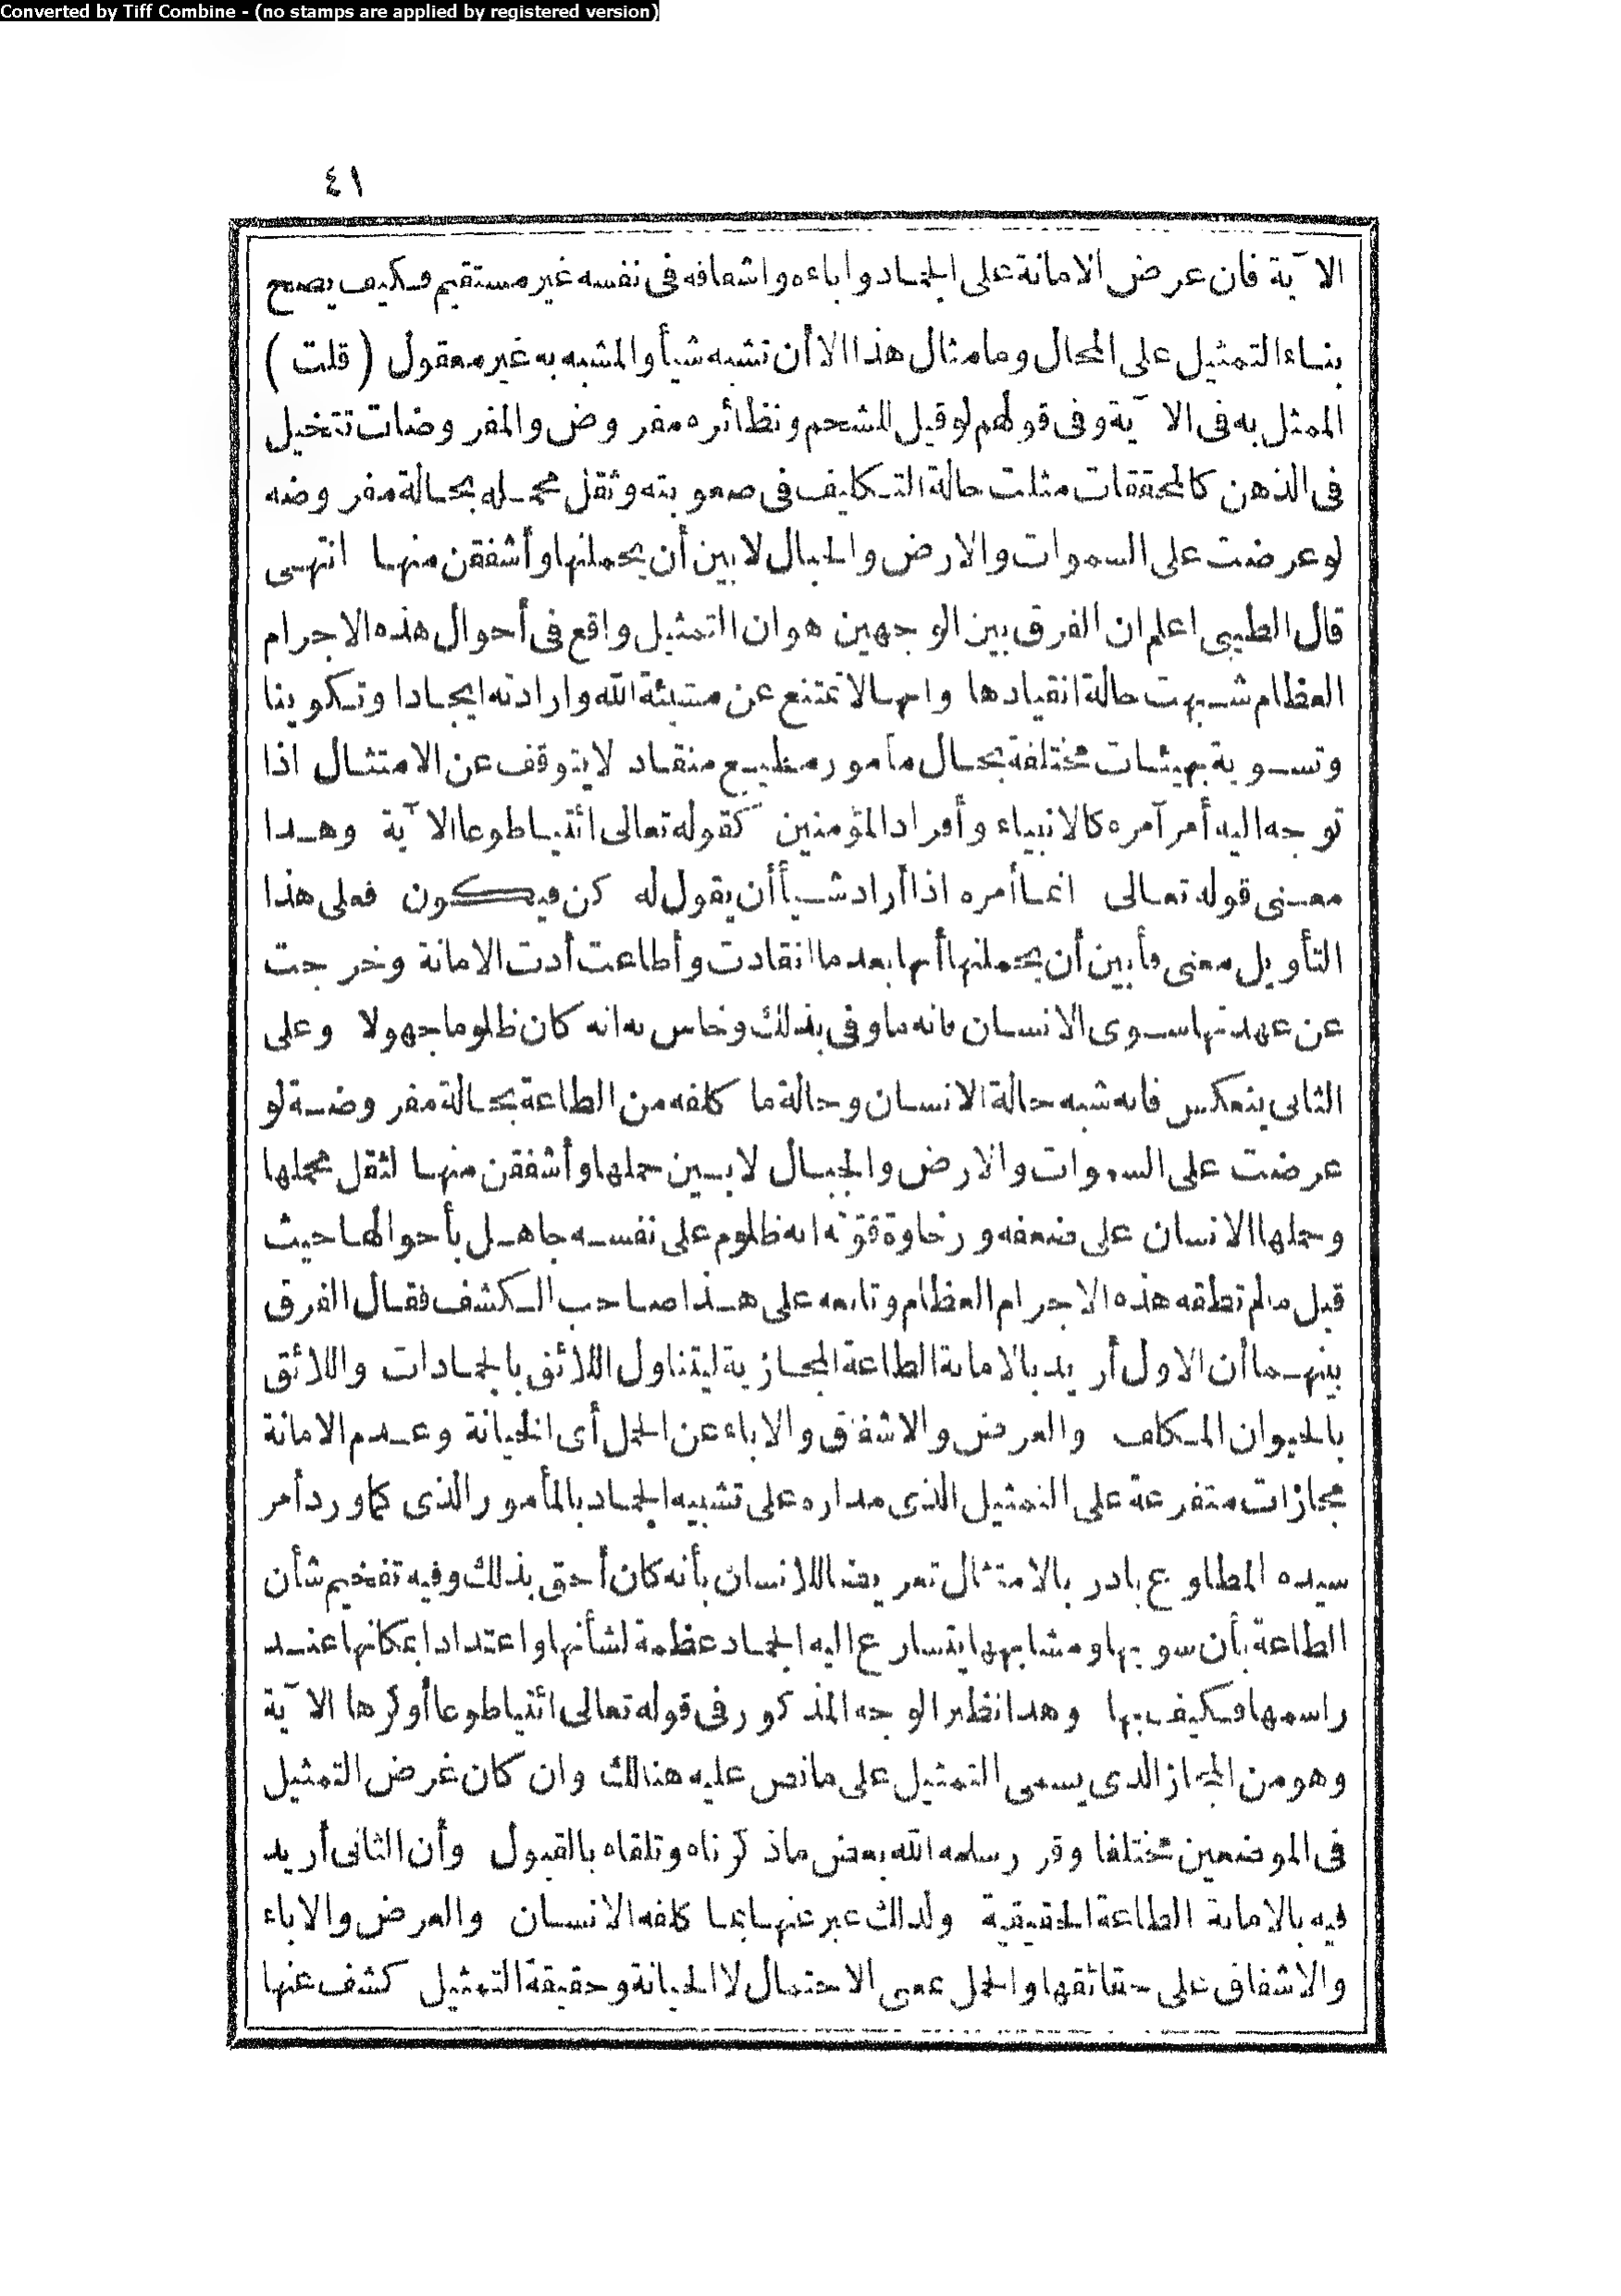 Converted by Tiff Combine - (no stamps are applied by registered version)
٤١
الآية فان عرض الامانة على الجماد واباءه واشفاقه فى نفسه غير مستقيم فكيف يصح
بناء التمثيل على المحال وما مثال هذا الا أن تشبه شيأ والمشبه به غير معقول (قلت)
الممثل به فى الآية وفى قولهم لو قيل للشحم ونظائره مفروض والمفروضات تتخيل
فى الذهن كالمحققات مثلت حالة التكليف فى صعوبته وثقل محمله بحالة مفروضه
لو عرضت على السموات والارض والجبال لابين أن يحملنها وأشفقن منها انتهى
قال الطيبى اعلم ان الفرق بين الوجهين هو ان التمثيل واقع فى أحوال هذه الاجرام
العظام شبهت حالة انقيادها وانها لا تمتنع عن مشيئة الله وارادته ايجادا وتكوينا
وتسوية بهيئات مختلفة بحال مأمور مطيع منقاد لا يتوقف عن الامتثال اذا
توجه اليه أمر آمره كالانبياء وأفراد المؤمنين كقوله تعالى ائتيا طوعا الآية وهذا
معنى قوله تعالى انما أمره اذا أراد شيأ أن يقول له كن فيكون فعلى هذا
التأويل معنى فأبين أن يحملنها أنها بعد ما انقادت وأطاعت أدت الامانة وخرجت
عن عهدتها سوى الانسان فانه ما وفى بذلك وخاس به انه كان ظلوما جهولا وعلى
الثانى ينعكس فانه شبه حالة الانسان وحالة ما كلفه من الطاعة بحالة مفروضة لو
عرضت على السموات والارض والجبال لابين حملها وأشفقن منها لثقل محملها
وحملها الانسان على ضعفه ورخاوة قوّته انه ظلوم على نفسه جاهل بأحوالها حيث
قبل ما لم تطقه هذه الاجرام العظام وتابعه على هذا صاحب الكشف فقال الفرق
بينهما أن الاول أريد بالامانة الطاعة المجازية ليتناول اللائق بالجمادات واللائق
بالحيوان المكلف والعرض والاشفاق والاباء عن الحمل أى الخيانة وعدم الامانة
مجازات متفرعة على التمثيل الذى مداره على تشبيه الجماد بالمأمور الذى كما ورد أمر
سيده المطاوع بادر بالامتثال تعريضا للانسان بأنه كان أحق بذلك وفيه تفخيم شأن
الطاعة بأن سويها ومشابهها يتسارع اليه الجماد عظمة لشأنها واعتدادا بمكانها عند
راسمها فكيف بها وهذا نظير الوجه المذكور فى قوله تعالى ائتيا طوعا أو كرها الآية
وهو من المجاز الذى يسمى التمثيل على ما نص عليه هنالك وان كان غرض التمثيل
فى الموضعين مختلفا وقرر سلمه الله بعض ما ذكرناه وتلقاه بالقبول وأن الثانى أريد
فيه بالامانة الطاعة الحقيقية ولذلك عبر عنها بما كلفه الانسان والعرض والاباء
والاشفاق على حقائقها والحمل بمعنى الاحتمال لا الخيانة وحقيقة التمثيل كشف عنها